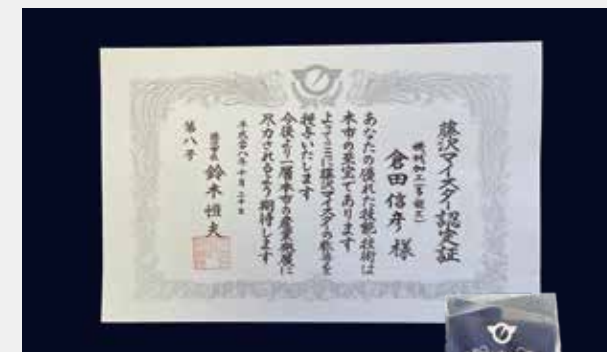 藤沢マイスター認定証
倉田信彦 様
あなたの優れた技能技術は
本市の至宝であります
よってここに藤沢マイスターの称号を
授与いたします
今後より一層本市の産業発展に
尽力されるよう期待します
平成廿八年十月二十日
藤沢市長 鈴木恒夫
第八号